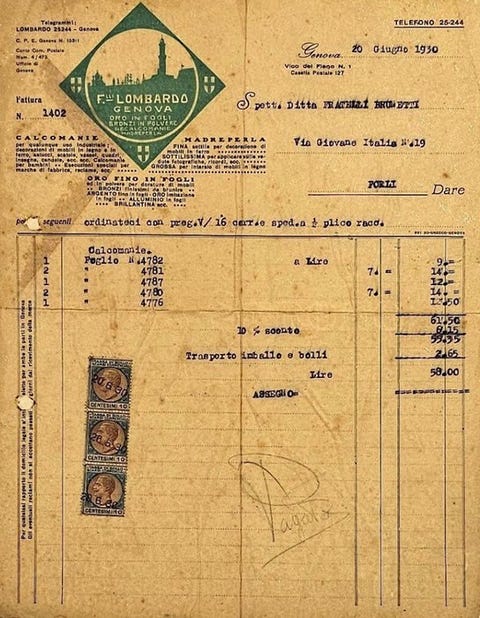 Telegrammi:
LOMBARDO 25244 - Genova
C. P. E. Genova N.
Conto Corr. Postale
Num. 4/473
Ufficio di
Genova
TELEFONO 25-244
Genova, 20 Giugno 1930
Vico del Piano N. 1
Casella Postale 127
F.lli LOMBARDO
GENOVA
ORO IN FOGLI
BRONZI IN POLVERE
DECALCOMANIE
MADREPERLA
Fattura
N. 1402
Spett. Ditta FRATELLI BRUNETTI
Via Giovane Italia N.19
FORLI
Dare
CALCOMANIE
per qualunque uso industriale;
decorazioni di mobili in legno e in
ferro,
per bambini - Calcomanie speciali per
marche di fabbrica, reclame, ecc.
MADREPERLA
FINA sottile per decorazione di
mobili in ferro
SOTTILISSIMA per applicare sulle
GROSSA per intarsio di mobili in legno
ORO FINO IN FOGLI
ed in polvere per dorature di mobili
BRONZI finissimi da bronzare
ARGENTO fino in fogli - ORO imitazione
in fogli - ALLUMINIO in fogli
BRILLANTINA ecc.
seguenti ordinateci con preg.V/ 16 corr.e sped.a ½ plico racc.
Calcomanie.
1 Foglio N.4782 a Lire 9.=
2 " 4781 7. = 14.=
1 " 4787 12.=
2 " 4780 7. = 14.=
1 " 4776 12.50
61.50
10 % sconto 6.15
55.35
Trasporto imballo e bolli 2.65
Lire 58.00
ASSEGNO=
CENTESIMI 10
CENTESIMI 10
CENTESIMI 10
Pagata
Per qualsiasi rapporto il domicilio legale
Gli eventuali reclami non si accettano passati giorni dal ricevimento della merce